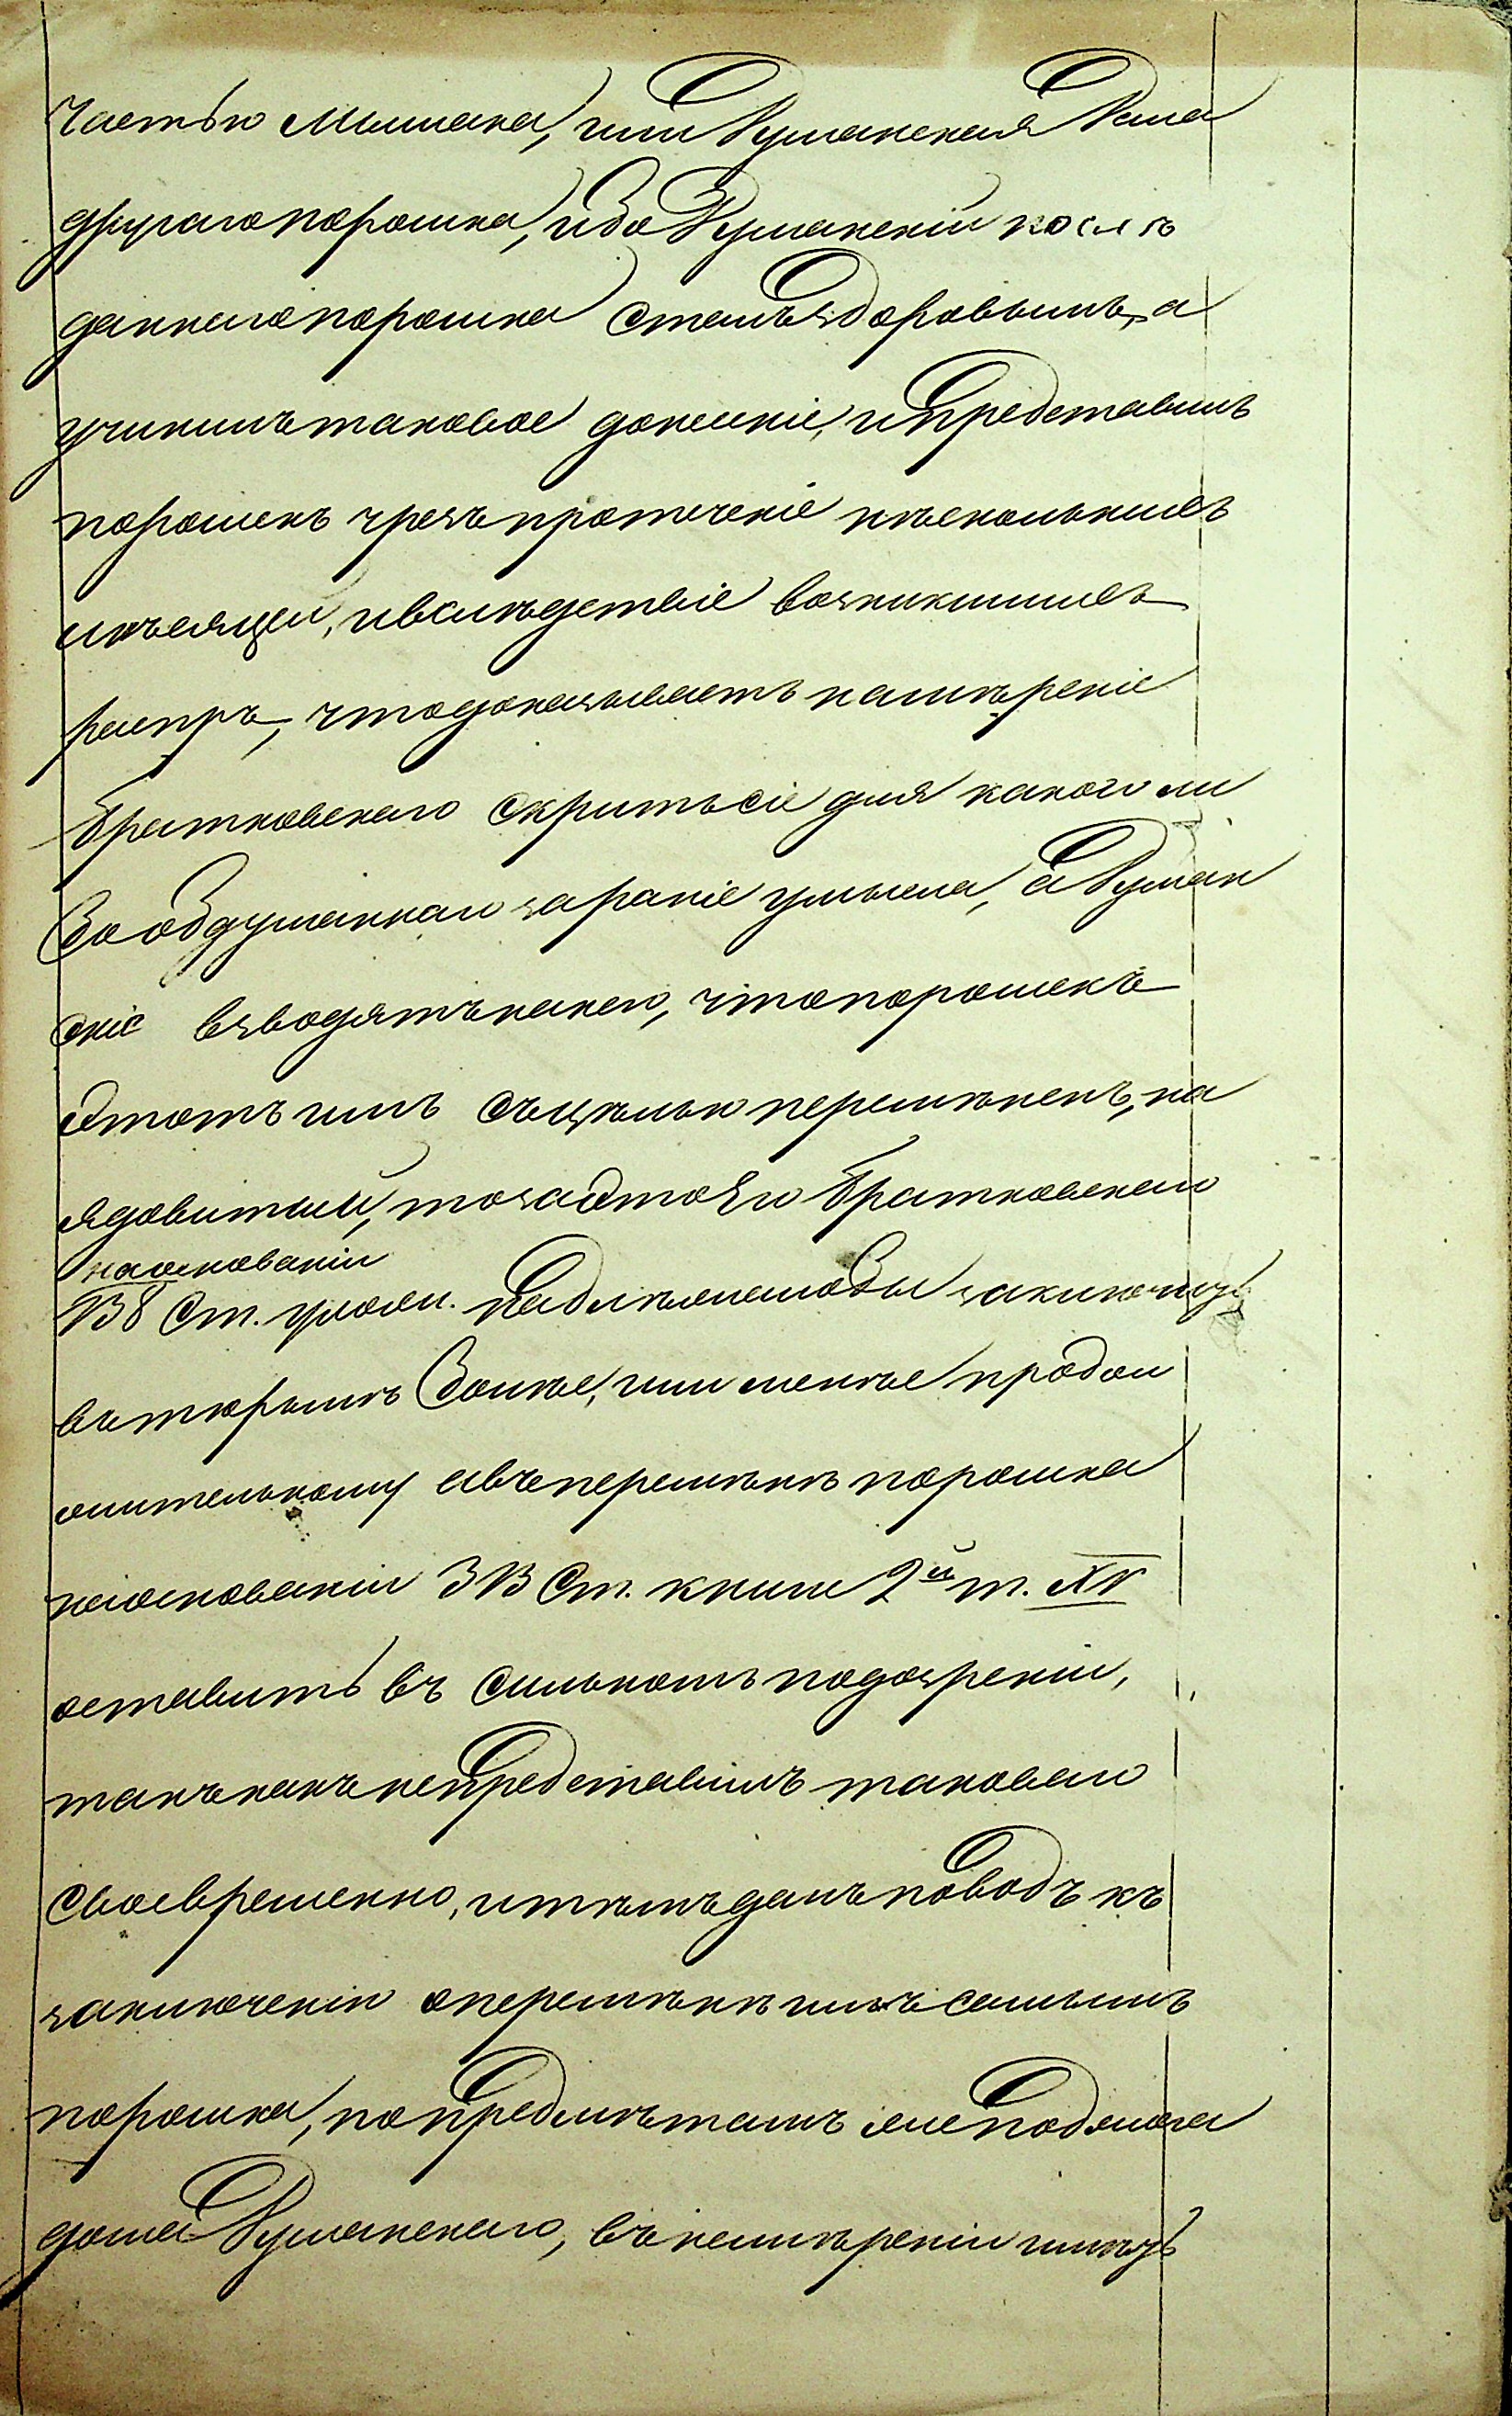 частью мышьяка, или Думанская дала
другаго порошка, ибо Думанскій послѣ
даннаго порошка сталъ здоровымъ, а
учинилъ таковое донесніе, и представилъ
порошекъ чрезъ протеченіе нѣсколькихъ
мѣсяцей, ивслѣдствіе возникшихъ
распръ, что доказываетъ намѣреніе
Братковскаго скрить сіе для какого ли
бо обдуманнаго зараніе умысла, а Думан
скіе взводятъ на него, что порошекъ
этотъ имъ съ цѣлью перемѣненъ, на
ядовитый, то за это Его Братковскаго
на основаніи
138 Ст. улож. надлежало бы заключить
въ тюрьмѣ болѣе, или менѣе продол
жительному авъ перемѣнѣ порошка
на основаніи 313 Ст. книги 2й т. XV
оставить въ сильномъ подозреніи,
такъ какъ не представилъ таковаго
своевременно, и тѣмъ далъ поводъ къ
заключенію о перемѣнѣ имъ самымъ
порошка, по предмѣтамъ же подлога
дома Думанскаго, въ намѣреніи